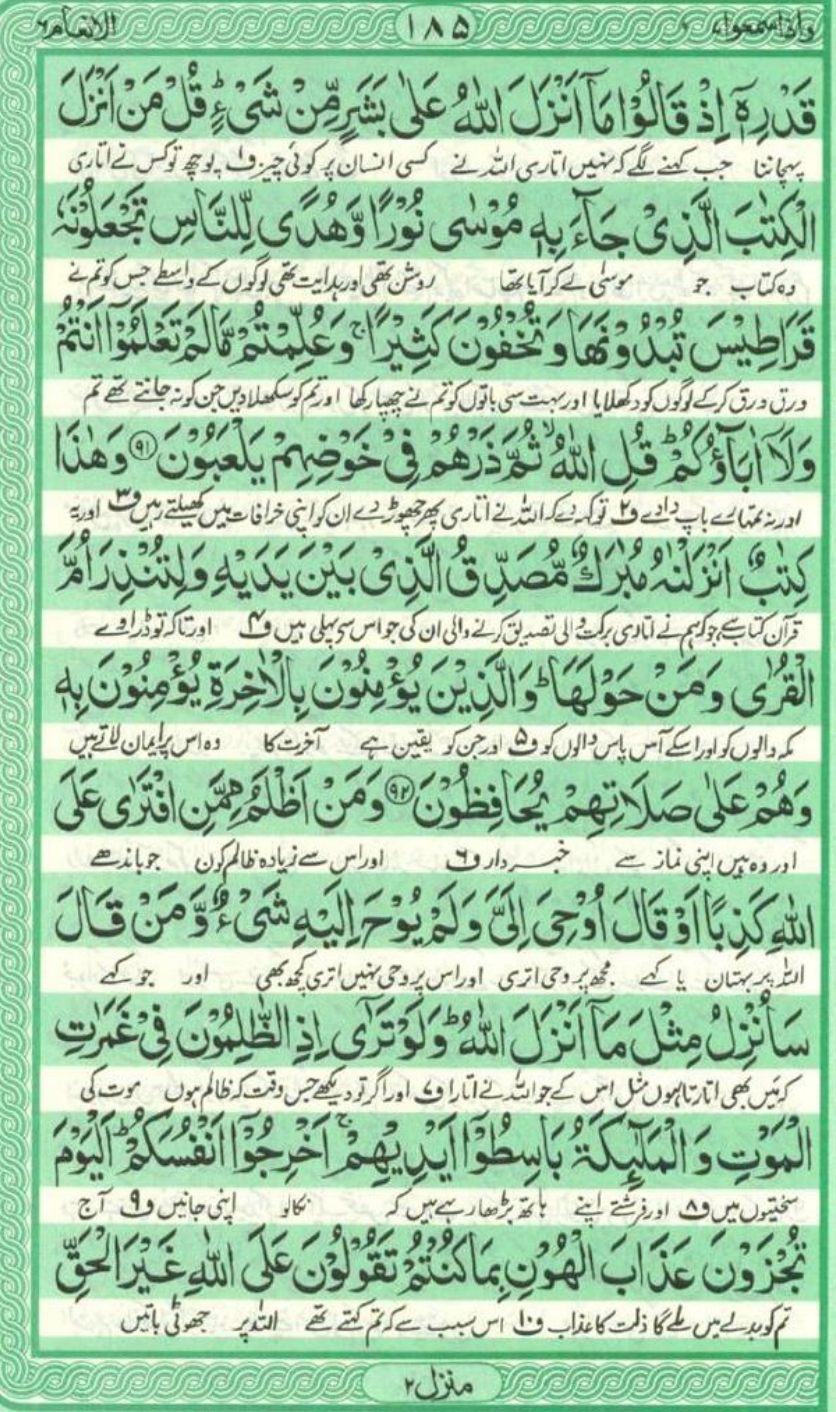 واذاسمعوا، ۱۸۵ الانعام۶
قَدْرِهٖٓ اِذْ قَالُوْا مَآ اَنْزَلَ اللّٰهُ عَلٰى بَشَرٍ مِّنْ شَیْءٍ ؕ قُلْ مَنْ اَنْزَلَ
پہچاننا جب کہنے لگے کہ نہیں اتاری اللہ نے کسی انسان پر کوئی چیز ف۱ پوچھ تو کس نے اتاری
الْكِتٰبَ الَّذِیْ جَآءَ بِهٖ مُوْسٰى نُوْرًا وَّهُدًى لِّلنَّاسِ تَجْعَلُوْنَهٗ
وہ کتاب جو موسیٰ لے کر آیا تھا روشن تھی اور ہدایت تھی لوگوں کے واسطے جس کو تم نے
قَرَاطِیْسَ تُبْدُوْنَهَا وَتُخْفُوْنَ كَثِیْرًا ۚ وَعُلِّمْتُمْ مَّا لَمْ تَعْلَمُوْۤا اَنْتُمْ
ورق ورق کر کے لوگوں کو دکھلایا اور بہت سی باتوں کو تم نے چھپا رکھا اور تم کو سکھلا دیں جن کو نہ جانتے تھے تم
وَلَآ اٰبَآؤُكُمْ ؕ قُلِ اللّٰهُ ۙ ثُمَّ ذَرْهُمْ فِیْ خَوْضِهِمْ یَلْعَبُوْنَ ۹۱ وَهٰذَا
اور نہ تمہارے باپ دادے ف۲ تو کہہ دے کہ اللہ نے اتاری پھر چھوڑ دے ان کو اپنی خرافات میں کھیلتے رہیں ف۳ اور یہ
كِتٰبٌ اَنْزَلْنٰهُ مُبٰرَكٌ مُّصَدِّقُ الَّذِیْ بَیْنَ یَدَیْهِ وَلِتُنْذِرَ اُمَّ
قرآن کتاب ہے جو کہ ہم نے اتاری برکت والی تصدیق کرنے والی ان کی جو اس سے پہلی ہیں ف۴ اور تاکہ تو ڈراوے
الْقُرٰى وَمَنْ حَوْلَهَا ؕ وَالَّذِیْنَ یُؤْمِنُوْنَ بِالْاٰخِرَةِ یُؤْمِنُوْنَ بِهٖ
مکہ والوں کو اور اسکے آس پاس والوں کو ف۵ اور جن کو یقین ہے آخرت کا وہ اس پر ایمان لاتے ہیں
وَهُمْ عَلٰى صَلَاتِهِمْ یُحَافِظُوْنَ ۹۲ وَمَنْ اَظْلَمُ مِمَّنِ افْتَرٰى عَلَى
اور وہ ہیں اپنی نماز سے خبردار ف۶ اور اس سے زیادہ ظالم کون جو باندھے
اللّٰهِ كَذِبًا اَوْ قَالَ اُوْحِیَ اِلَیَّ وَلَمْ یُوْحَ اِلَیْهِ شَیْءٌ وَّمَنْ قَالَ
اللہ پر بہتان یا کہے مجھ پر وحی اتری اور اس پر وحی نہیں اتری کچھ بھی اور جو کہے
سَاُنْزِلُ مِثْلَ مَآ اَنْزَلَ اللّٰهُ ؕ وَلَوْ تَرٰۤى اِذِ الظّٰلِمُوْنَ فِیْ غَمَرٰتِ
کہ میں بھی اتارتا ہوں مثل اس کے جو اللہ نے اتارا ف۷ اور اگر تو دیکھے جس وقت کہ ظالم ہوں موت کی
الْمَوْتِ وَالْمَلٰٓئِكَةُ بَاسِطُوْۤا اَیْدِیْهِمْ ۚ اَخْرِجُوْۤا اَنْفُسَكُمْ ؕ اَلْیَوْمَ
سختیوں میں ف۸ اور فرشتے اپنے ہاتھ بڑھا رہے ہیں کہ نکالو اپنی جانیں ف۹ آج
تُجْزَوْنَ عَذَابَ الْهُوْنِ بِمَا كُنْتُمْ تَقُوْلُوْنَ عَلَى اللّٰهِ غَیْرَ الْحَقِّ
تم کو بدلے میں ملے گا ذلت کا عذاب ف۱۰ اس سبب سے کہ تم کہتے تھے اللہ پر جھوٹی باتیں
منزل۲